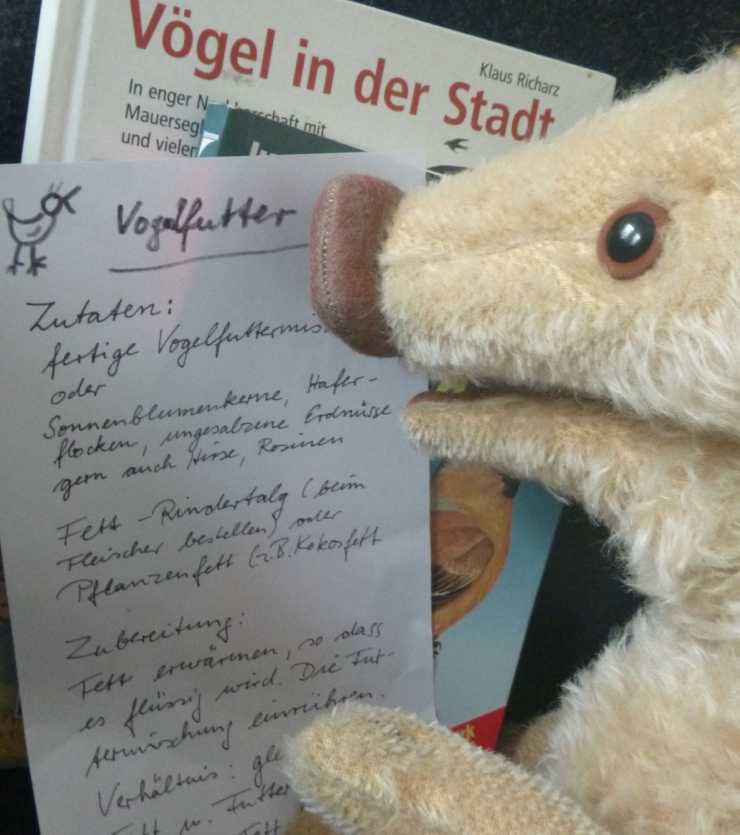 Vögel in der Stadt
Klaus Richarz
In enger
Mauersegl
und vielen
mit
Vogelfutter
Zutaten:
fertige Vogelfuttermis
oder
Sonnenblumenkerne, Hafer-
flocken, ungesalzene Erdnüsse
gern auch Hirse, Rosinen
Fett - Rindertalg (beim
Fleischer bestellen) oder
Pflanzenfett (z.B. Kokosfett
Zubereitung:
Fett erwärmen, so dass
es flüssig wird. Die Fut-
termischung einrühren.
Verhältnis: gle
Fett u. Futter
Fett